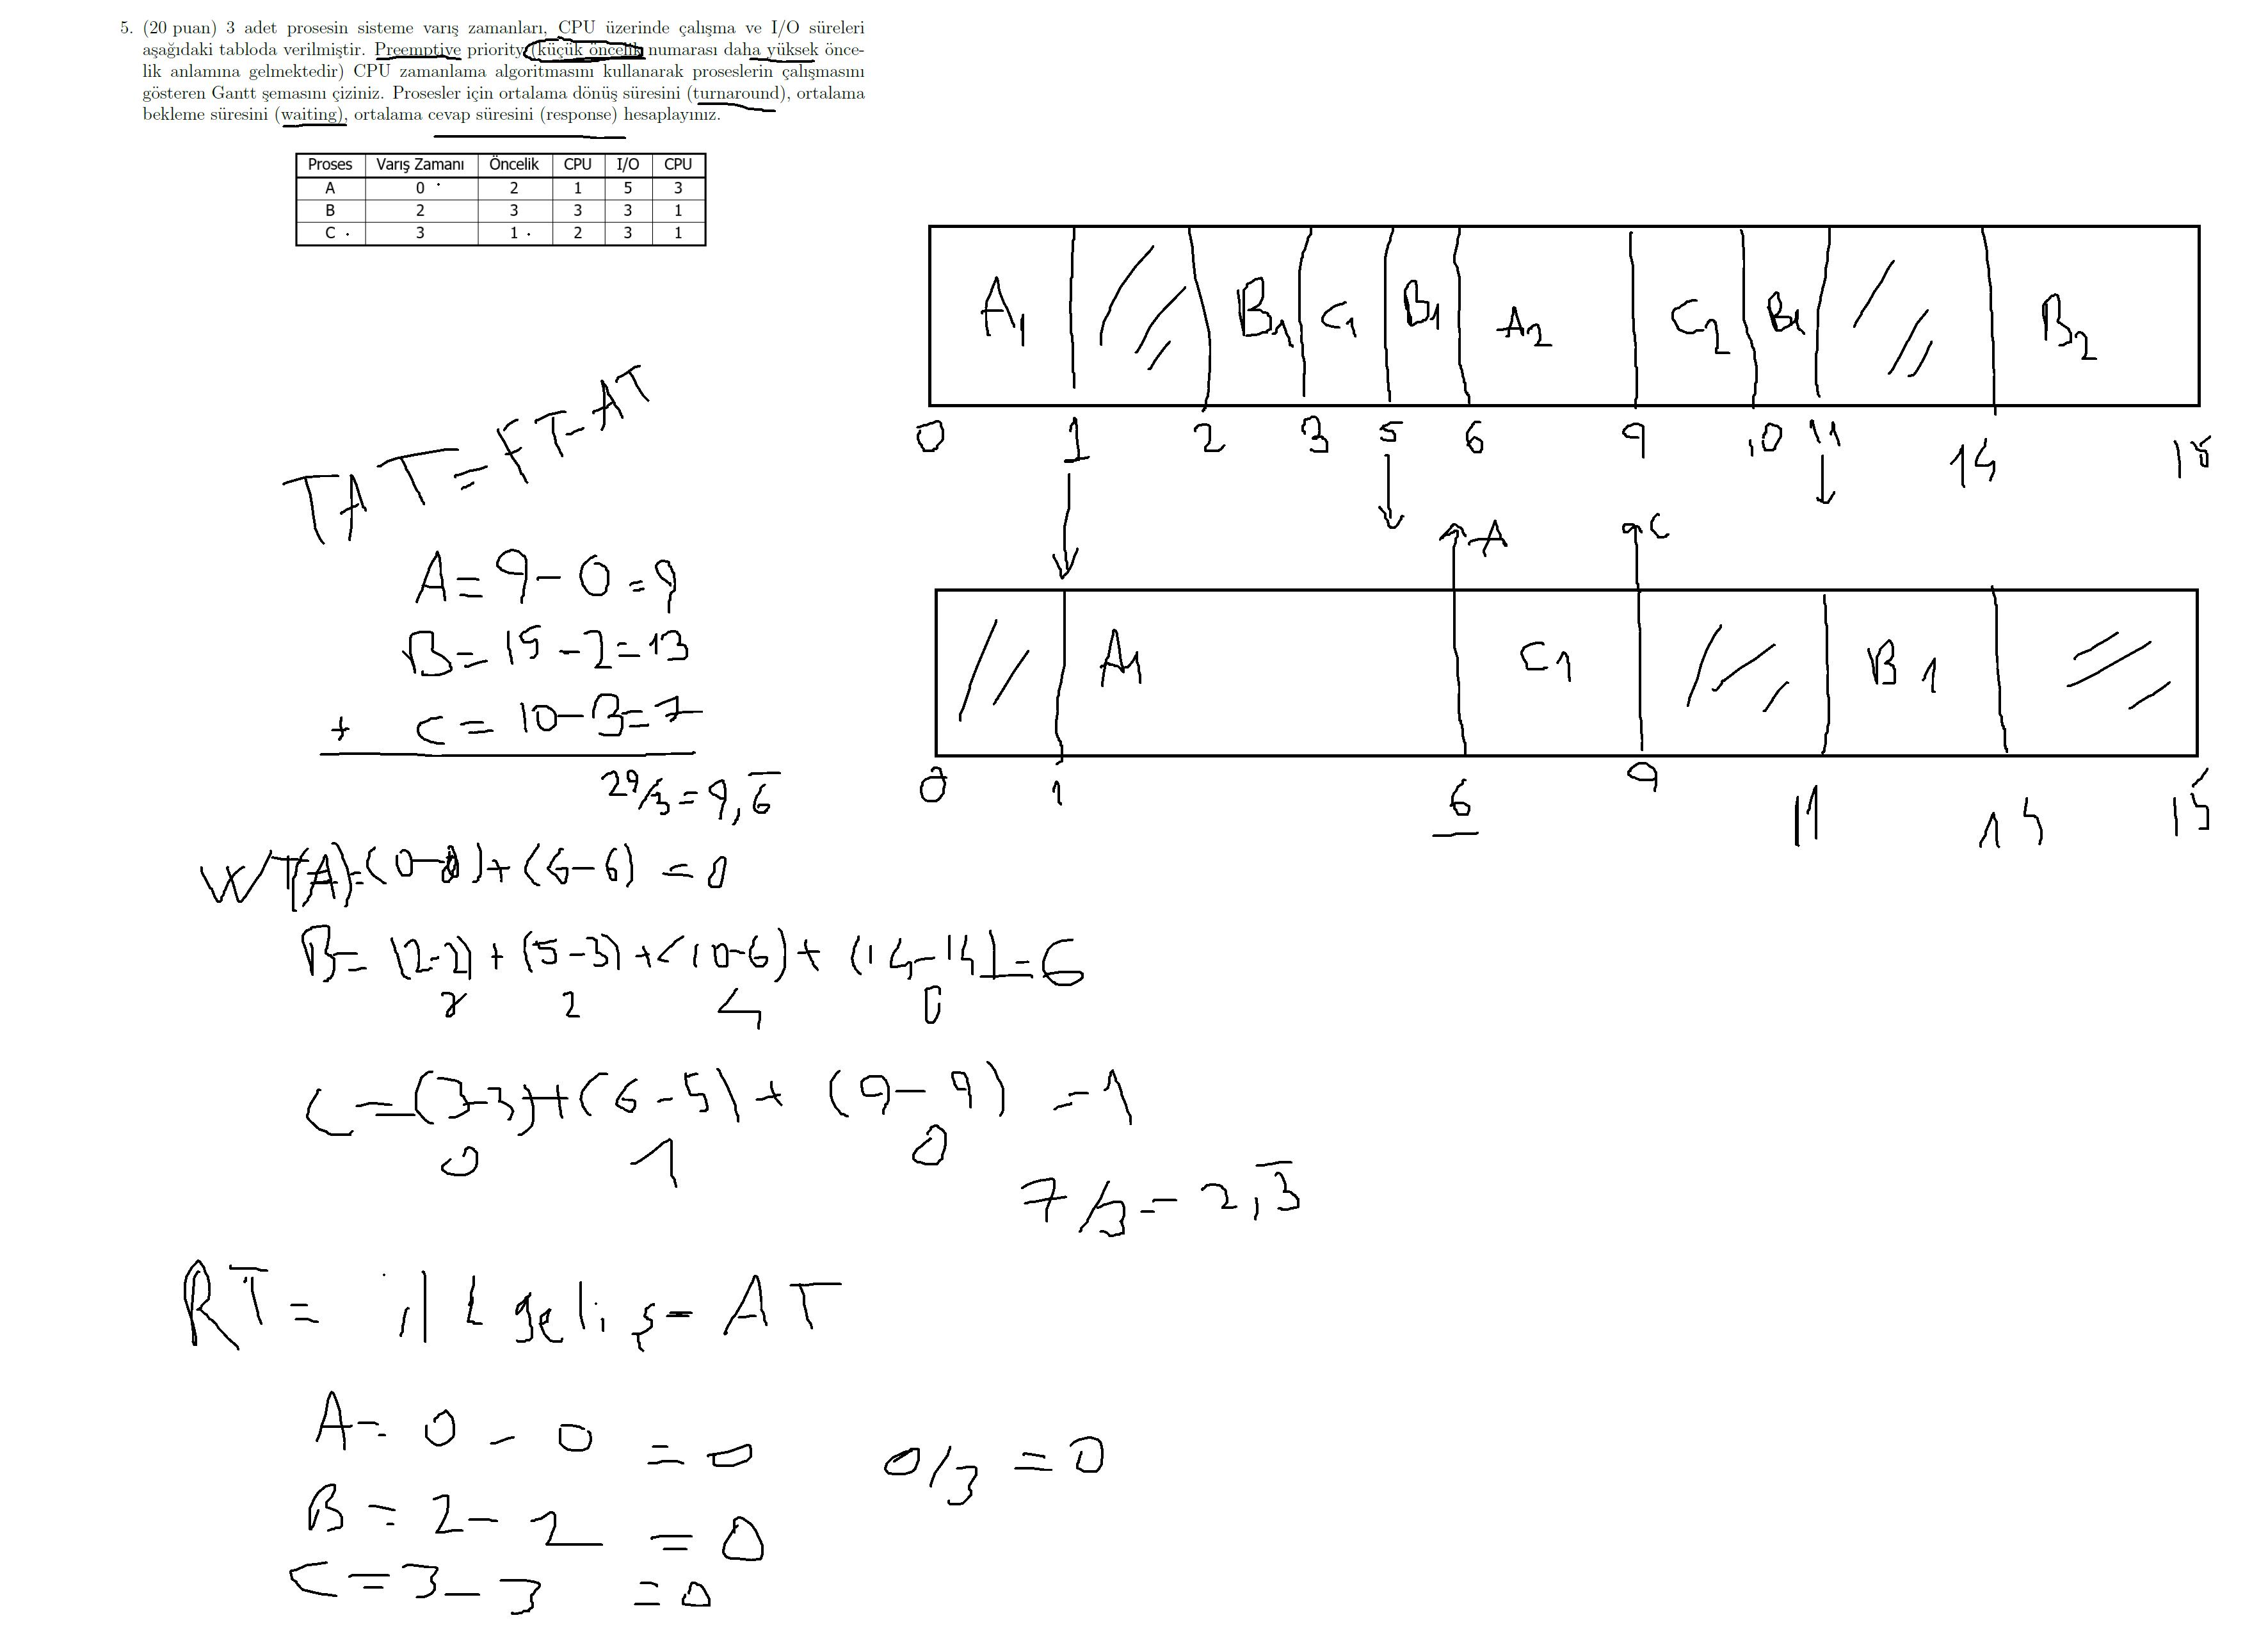 5. (20 puan) 3 adet prosesin sisteme varış zamanları, CPU üzerinde çalışma ve I/O süreleri
aşağıdaki tabloda verilmiştir. Preemptive priority (küçük öncelik numarası daha yüksek önce-
lik anlamına gelmektedir) CPU zamanlama algoritmasını kullanarak proseslerin çalışmasını
gösteren Gantt şemasını çiziniz. Prosesler için ortalama dönüş süresini (turnaround), ortalama
bekleme süresini (waiting), ortalama cevap süresini (response) hesaplayınız.
Proses Varış Zamanı Öncelik CPU I/O CPU
A 0 2 1 5 3
B 2 3 3 3 1
C 3 1 2 3 1
A1 B1 C1 B1 A2 C2 B1 B2
0 1 2 3 5 6 9 10 11 14 15
A C
A1 C1 B1
0 1 6 9 11 14 15
TAT=FT-AT
A=9-0=9
B=15-2=13
+ C=10-3=7
29/3=9,6
WT(A)=(0-0)+(6-6)=0
B=(2-2)+(5-3)+(10-6)+(14-14)=6
0 2 4 0
C=(3-3)+(6-5)+(9-9)=1
0 1 0
7/3=2,3
RT= ilk geliş-AT
A=0-0=0
0/3=0
B=2-2=0
C=3-3=0